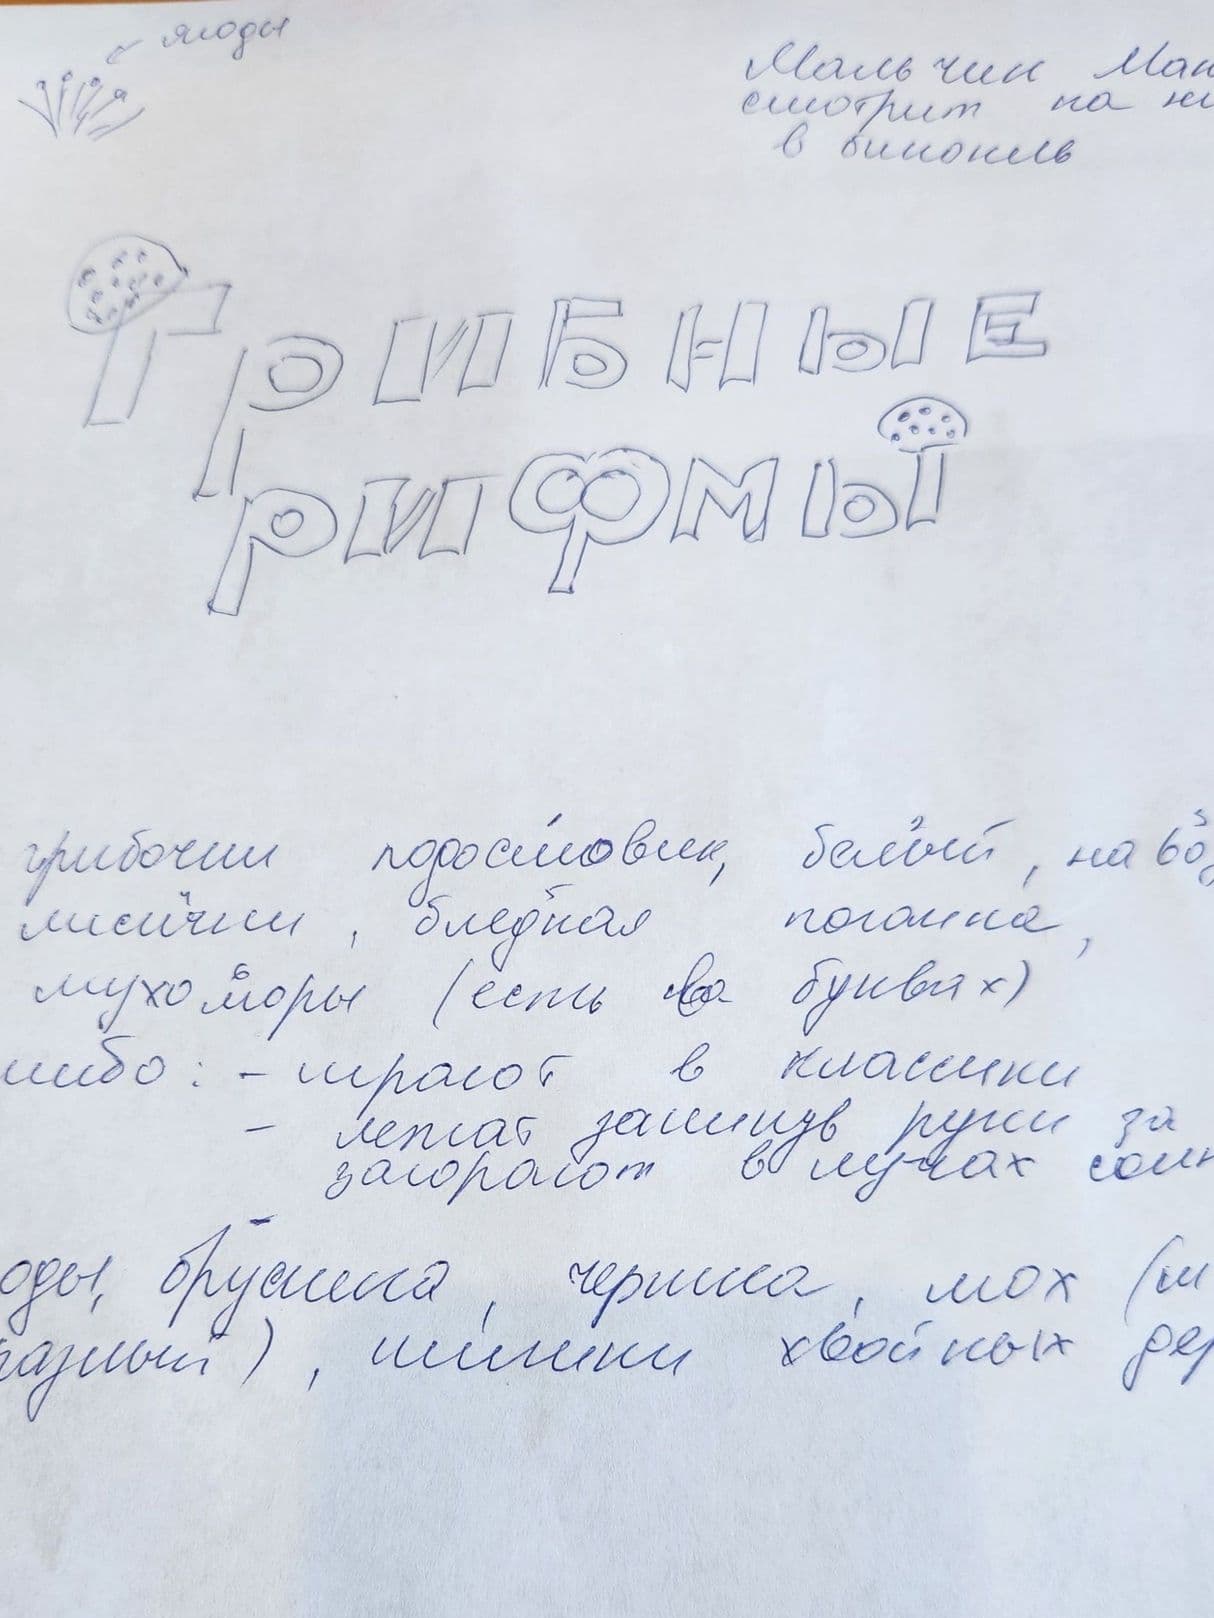 ягоды
Мальчик Мак
смотрит на ни
в бинокль
Грибные
рифмы
грибочки подосиновик, белый, на
лисички, бледная поганка,
мухоморы (есть на буквах)
либо: - играют в классики
- лежат закинув руки за
загорают в лучах солн
оды, брусника, черника, мох (м
разный), шишки хвойных дер